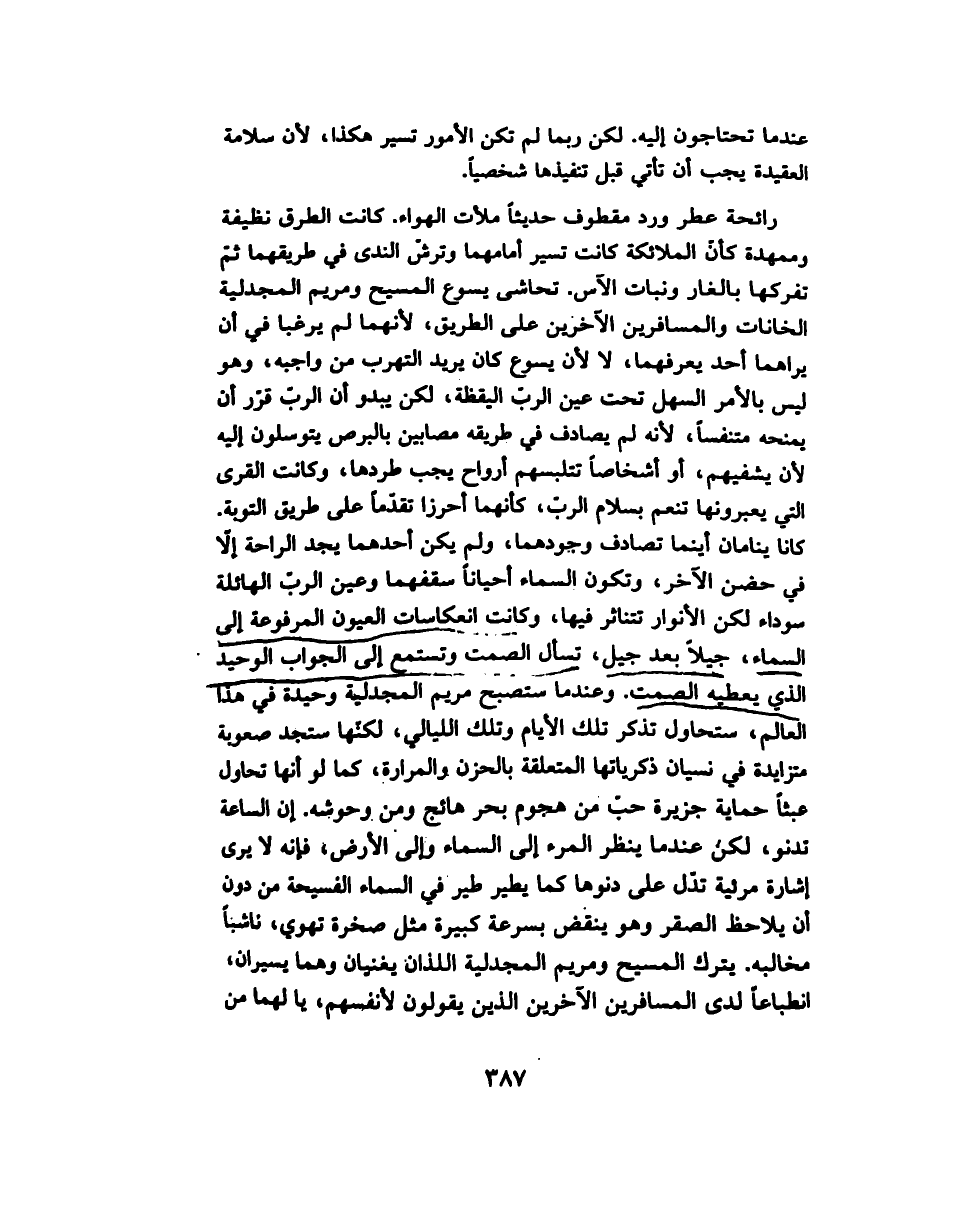 عندما تحتاجون إليه. لكن ربما لم تكن الأمور تسير هكذا، لأن سلامة
العقيدة يجب أن تأتي قبل تنفيذها شخصياً.
رائحة عطر ورد مقطوف حديثاً ملأت الهواء. كانت الطرق نظيفة
وممهدة كأنّ الملائكة كانت تسير أمامهما وترشّ الندى في طريقهما ثمّ
تفركها بالغار ونبات الآس. تحاشى يسوع المسيح ومريم المجدلية
الخانات والمسافرين الآخرين على الطريق، لأنهما لم يرغبا في أن
يراهما أحد يعرفهما، لا لأن يسوع كان يريد التهرب من واجبه، وهو
ليس بالأمر السهل تحت عين الربّ اليقظة، لكن يبدو أن الربّ قرّر أن
يمنحه متنفساً، لأنه لم يصادف في طريقه مصابين بالبرص يتوسلون إليه
لأن يشفيهم، أو أشخاصاً تتلبسهم أرواح يجب طردها، وكانت القرى
التي يعبرونها تنعم بسلام الربّ، كأنهما أحرزا تقدّماً على طريق التوبة.
كانا ينامان أينما تصادف وجودهما، ولم يكن أحدهما يجد الراحة إلّا
في حضن الآخر، وتكون السماء أحياناً سقفهما وعين الربّ الهائلة
سوداء لكن الأنوار تتناثر فيها، وكانت انعكاسات العيون المرفوعة إلى
السماء، جيلاً بعد جيل، تسأل الصمت وتستمع إلى الجواب الوحيد
الذي يعطيه الصمت. وعندما ستصبح مريم المجدلية وحيدة في هذا
العالم، ستحاول تذكر تلك الأيام وتلك الليالي، لكنّها ستجد صعوبة
متزايدة في نسيان ذكرياتها المتعلقة بالحزن والمرارة، كما لو أنها تحاول
عبثاً حماية جزيرة حبّ من هجوم بحر هائج ومن وحوشه. إن الساعة
تدنو، لكنْ عندما ينظر المرء إلى السماء وإلى الأرض، فإنه لا يرى
إشارة مرئية تدّل على دنوها كما يطير طير في السماء الفسيحة من دون
أن يلاحظ الصقر وهو ينقض بسرعة كبيرة مثل صخرة تهوي، ناشباً
مخالبه. يترك المسيح ومريم المجدلية اللذان يغنيان وهما يسيران،
انطباعاً لدى المسافرين الآخرين الذين يقولون لأنفسهم، يا لهما من
٣٨٧